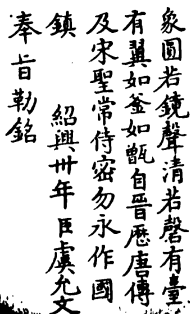 象圓若鏡聲清若磬有臺
有翼如釜如甑自晉歷唐傳
及宋聖常侍密勿永作國
鎮　紹興卅年臣虞允文
奉旨勒銘